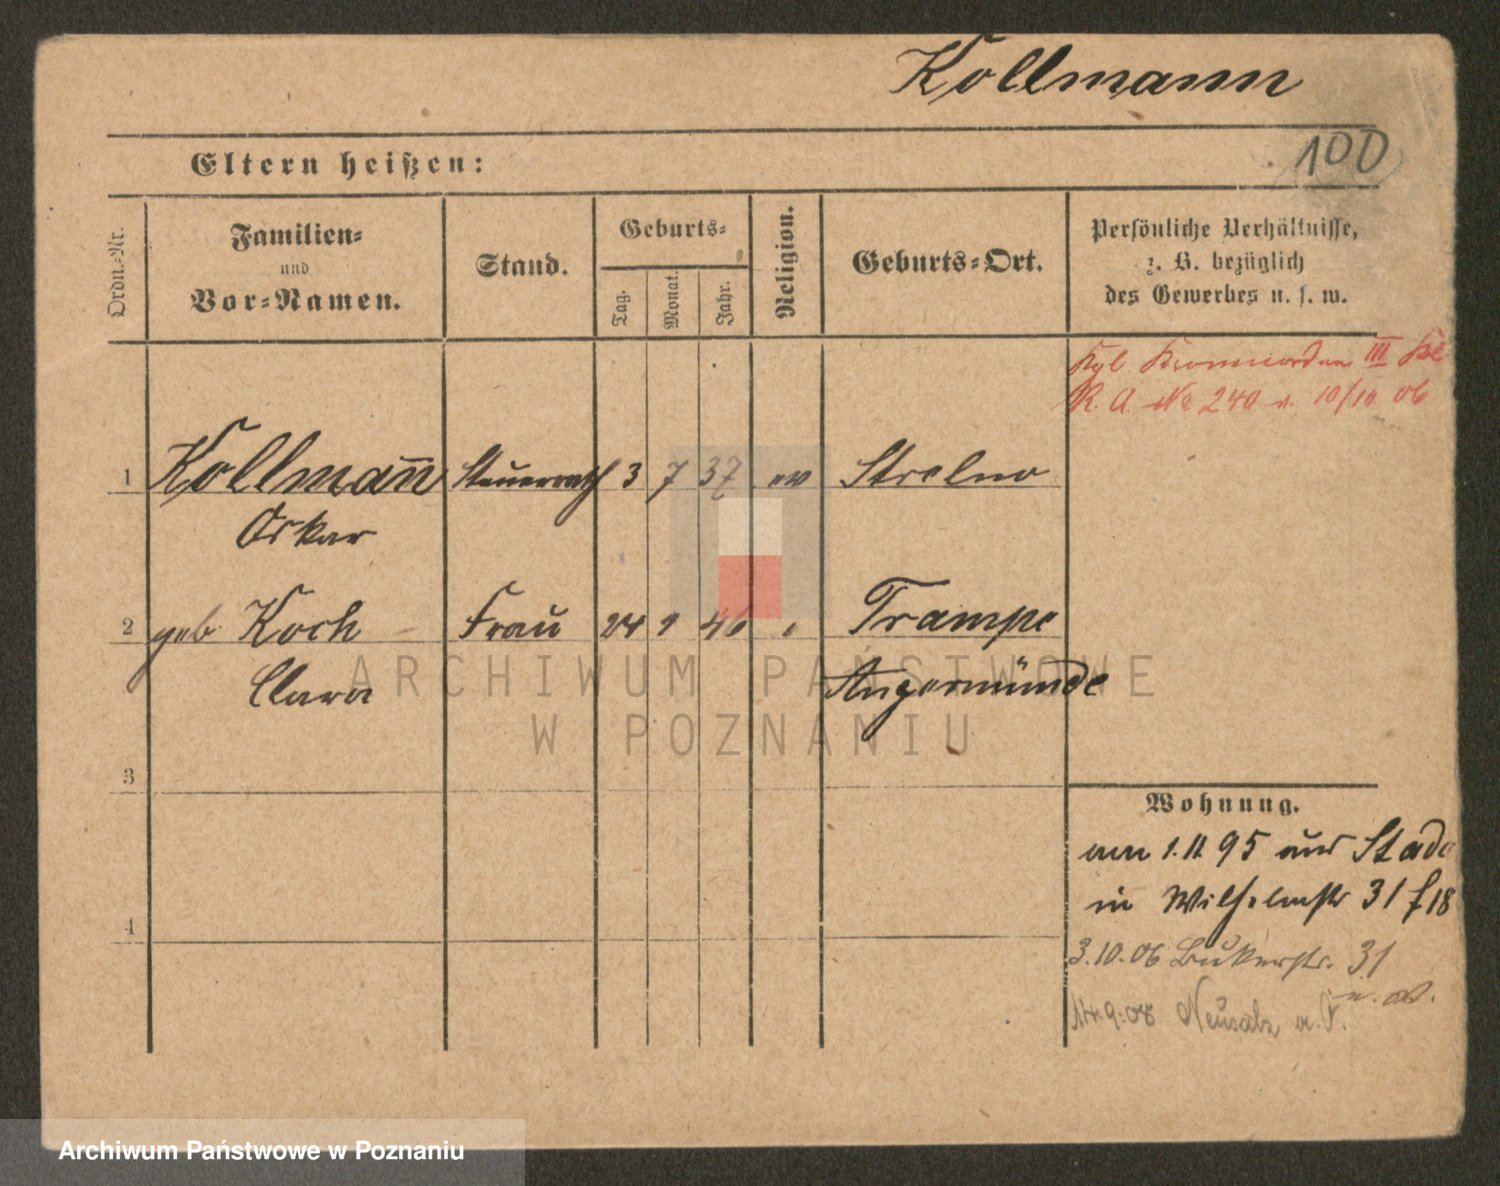 Kollmann
100
Eltern heißen:
Ordn.-Nr.
Familien-
und
Vor-Namen.
Stand.
Geburts-
Tag.
Monat.
Jahr.
Religion.
Geburts-Ort.
Persönliche Verhältnisse,
z. B. bezüglich
des Gewerbes u. s. w.
Kgl Kronenorden III Kl
R. A. No 240 v. 10/10 06
1 Kollmañ Steuerrath 3 7 37 ev Strelno
Oskar
2 geb Koch Frau 24 9 46 Trampe
Clara Angermünde
ARCHIWUM PAŃSTWOWE
W POZNANIU
3
Wohnung.
am 1.11 95 aus Stade
in Wilhelmstr 31 f 18
4
3.10.06 Bukerstr. 31
14.9.08 Neusalz a. O.
Archiwum Państwowe w Poznaniu